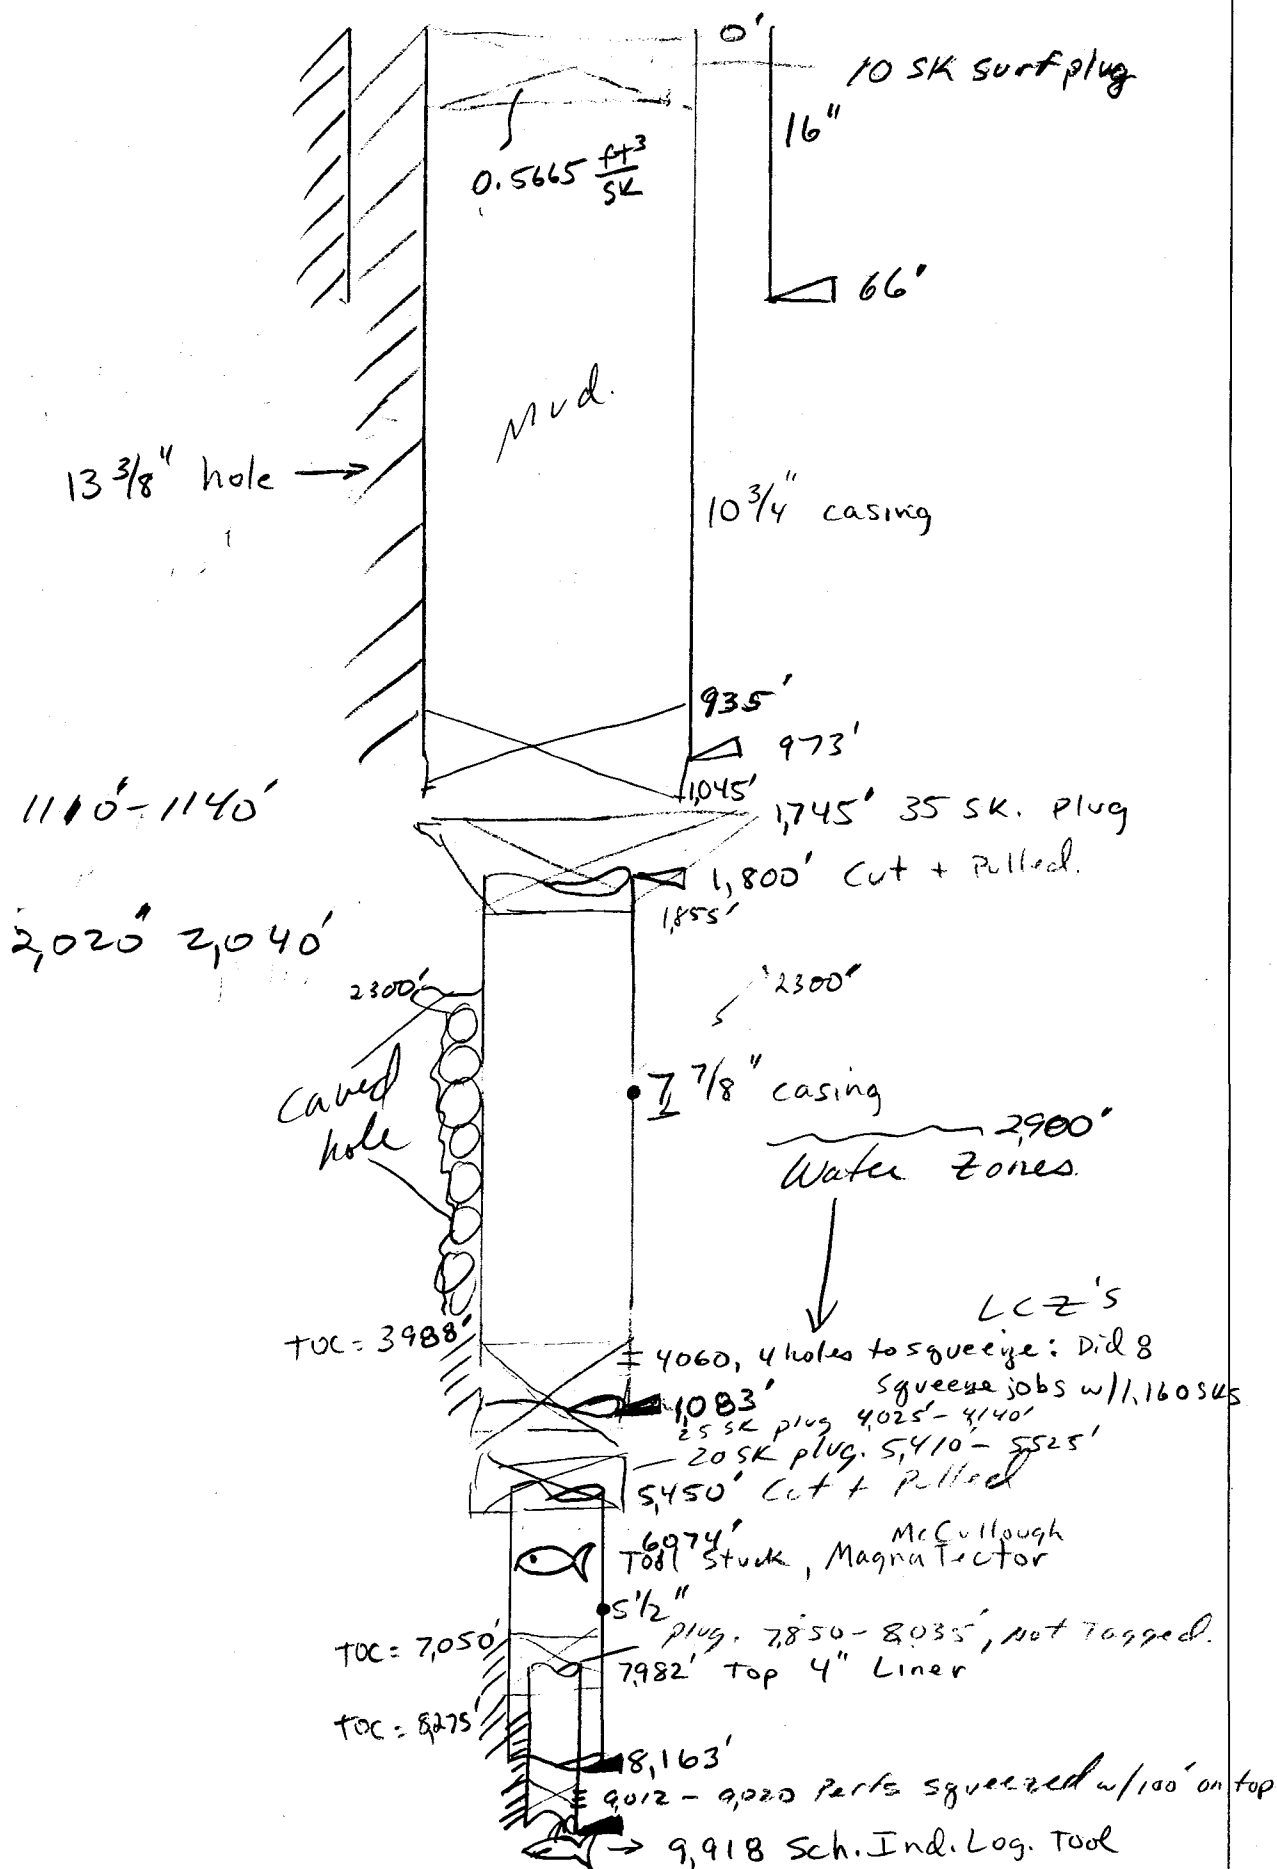 0'
10 SK surf plug
16"
0.5665 ft³/SK
66'
Mud.
13 3/8" hole →
10 3/4" casing
935'
973'
1,045'
1110'-1140'
1,745' 35 SK. Plug
1,800' Cut + Pulled.
1,855'
2,020' 2,040'
2300'
2300'
Caved
hole
7 7/8" casing
2,900'
Water Zones.
LCZ'S
TOC = 3988'
4060, 4 holes to squeeze: Did 8
squeeze jobs w/1,160 sks
1,083'
25 SK plug 4,025'- 4,140'
20 SK plug. 5,410'- 5,525'
5,450' Cut + Pulled
6,074' McCullough
Tool Stuck, MagnaTector
5 1/2"
TOC = 7,050'
plug. 7,850-8,035', not Tagged.
7,982' Top 4" Liner
TOC = 8,275'
8,163'
9,012 - 9,020 Perfs squeezed w/100' on top
→ 9,918 Sch. Ind. Log. Tool